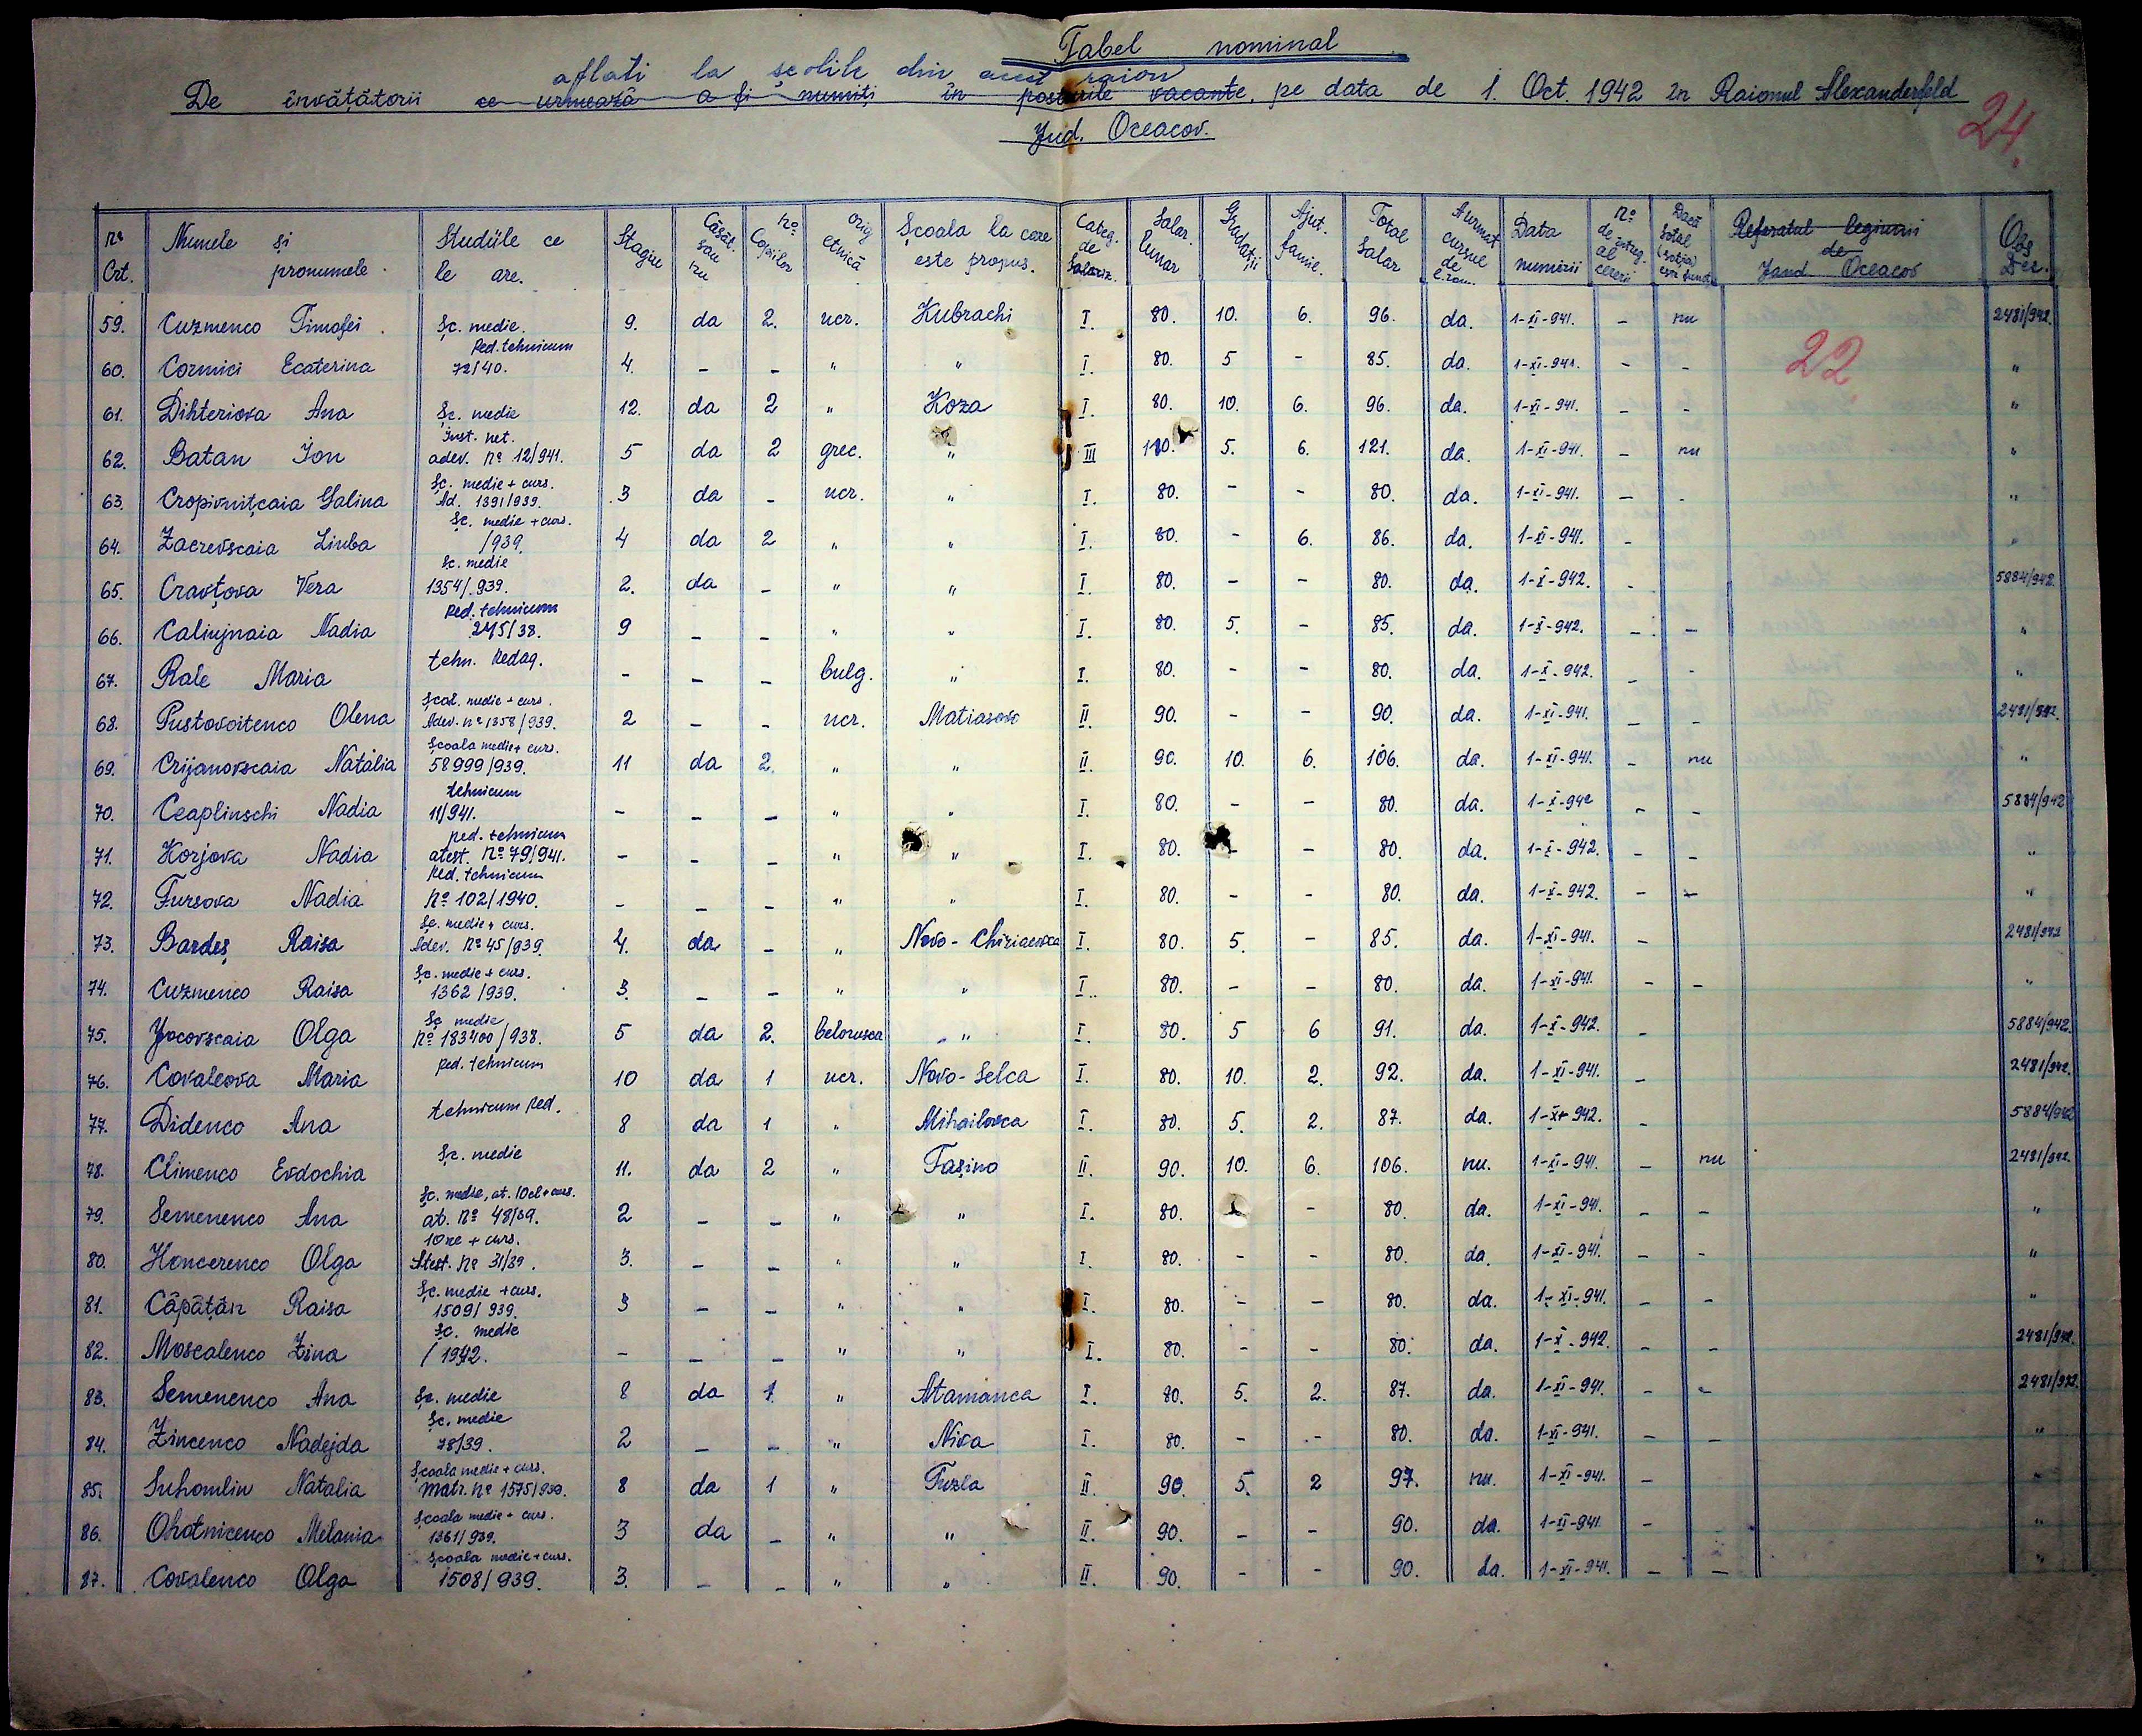 Tabel nominal
aflati la școlile din acest raion
De învățătorii ce urmează a fi numiți în posturile vacante, pe data de 1. Oct. 1942 în Raionul Alexanderfeld
Jud. Oceacov.
24.
22
No Crt. | Numele și pronumele. | Studiile ce le are. | Stagiu | Căsăt. sau nu | No. Copiilor | orig etnică | Școala la care este propus. | Categ. de Salariz. | Salar. lunar | Gradații | Ajut. famil. | Total Salar | A urmat cursul de l. rom. | Data numirii | No de înreg. al cererii | Dacă sotul (sotia) | Referatul legiunii de Jand Oceacov | Obs Dec.
59. Cuzmenco Timofei. Șc. medie. 9. da 2. ucr. Kubrachi I. 80. 10. 6. 96. da. 1-XI-941. - nu 2481/942.
60. Cormici Ecaterina Ped. tehnicum 72/40. 4. - - " " I. 80. 5 - 85. da. 1-XI-941. - - "
61. Dihteriova Ana Șc. medie 12. da 2 " Koza I. 80. 10. 6. 96. da. 1-XI-941. - - "
62. Batan Ion Inst. net. adev. No 12/941. 5 da 2 grec. " III 110. 5. 6. 121. da. 1-XI-941. - nu "
63. Cropivnițcaia Galina Șc. medie + curs. Ad. 1391/939. 3 da - ucr. " I. 80. - - 80. da. 1-XI-941. - - "
64. Zacrevscaia Liuba Șc. medie + curs. /939. 4 da 2 " " I. 80. - 6. 86. da. 1-XI-941. - "
65. Cravțova Vera Șc. medie 1354/.939. 2. da - " " I 80. - - 80. da. 1-X-942. - 5884/942.
66. Caliujnaia Nadia Ped. tehnicum 275/38. 9 - - " " I. 80. 5. - 85. da. 1-X-942. - - "
67. Rale Maria tehn. Pedag. - - - bulg. " I. 80. - - 80. da. 1-X-942. - - "
68. Pustovoitenco Olena Școl. medie + curs. Adev. No 1358/939. 2 - - ucr. Matiasovo II 90. - - 90. da. 1-XI-941. - - 2481/942.
69. Crijanovscaia Natalia Școala medie + curs. 58999/939. 11 da 2. " " II. 90. 10. 6. 106. da. 1-XI-941. - nu "
70. Ceaplinschi Nadia tehnicum 11/941. - - - " " I. 80. - - 80. da. 1-X-942 - - 5884/942
71. Korjova Nadia ped. tehnicum atest. No 79/941. - - - " " I. 80. - - 80. da. 1-X-942. - - "
72. Fursova Nadia Ped. tehnicum No 102/1940. - - - " " I. 80. - - 80. da. 1-X-942. - - "
73. Bardeș Raisa Șc. medie + curs. Adev. No 45/939. 4. da - " Novo-Chiriaevca I. 80. 5. - 85. da. 1-XI-941. - 2481/942
74. Cuzmenco Raisa Șc. medie + curs. 1362/939. 3. - - " " I.. 80. - - 80. da. 1-XI-941. - - "
75. Olga Șc medie No 183400/938. 5 da 2. belorusca " I. 80. 5 6 91. da. 1-X-942. - 5884/942.
76. Covaleova Maria ped. tehnicum 10 da 1 ucr. Novo-Selca I. 80. 10. 2. 92. da. 1-XI-941. - 2481/942.
77. Didenco Ana tehnicum Ped. 8 da 1 " Mihailovca I. 80. 5. 2. 87. da. 942. - 5884/942
78. Climenco Evdochia Șc. medie 11. da 2 " Tașino II. 90. 10. 6. 106. nu. 1-XI-941. - nu 2481/942.
79. Semenenco Ana Șc. medie, at. 10 cl + curs. at. No 48/39. 2 - - " " I. 80. - 80. da. 1-XI-941. - - "
80. Honcerenco Olga + curs. Atest. No 31/39. 3. - - " " I 80. - - 80. da. 1-XI-941. - - "
81. Căpățân Raisa Șc. medie + curs. 1509/939. 3 - - " " I. 80. - - 80. da. 1-XI-941. - - "
82. Moscalenco Zina Șc. medie /1942. - - - " " I. 80. - - 80. da. 1-X-942. - - 2481/942.
83. Semenenco Ana Șc. medie 8 da 1. " Atamanca I. 80. 5. 2. 87. da. 1-XI-941. - - 2481/942.
84. Zincenco Nadejda Șc. medie 78/39. 2 - - " Niva I. 80. - - 80. da. 1-XI-941. - - "
85. Suhomlin Natalia Școala medie + curs. Matr. No 1575/939. 8 da 1 " Tuzla II. 90. 5. 2 97. nu. 1-XI-941. - "
86. Ohotnicenco Melania Școala medie + curs. 1361/939. 3 da - " " II. 90. - - 90. da. 1-XI-941. - "
87. Covalenco Olga Școala medie + curs. 1508/939. 3. - - " " II. 90. - - 90. da. 1-XI-941. - - "